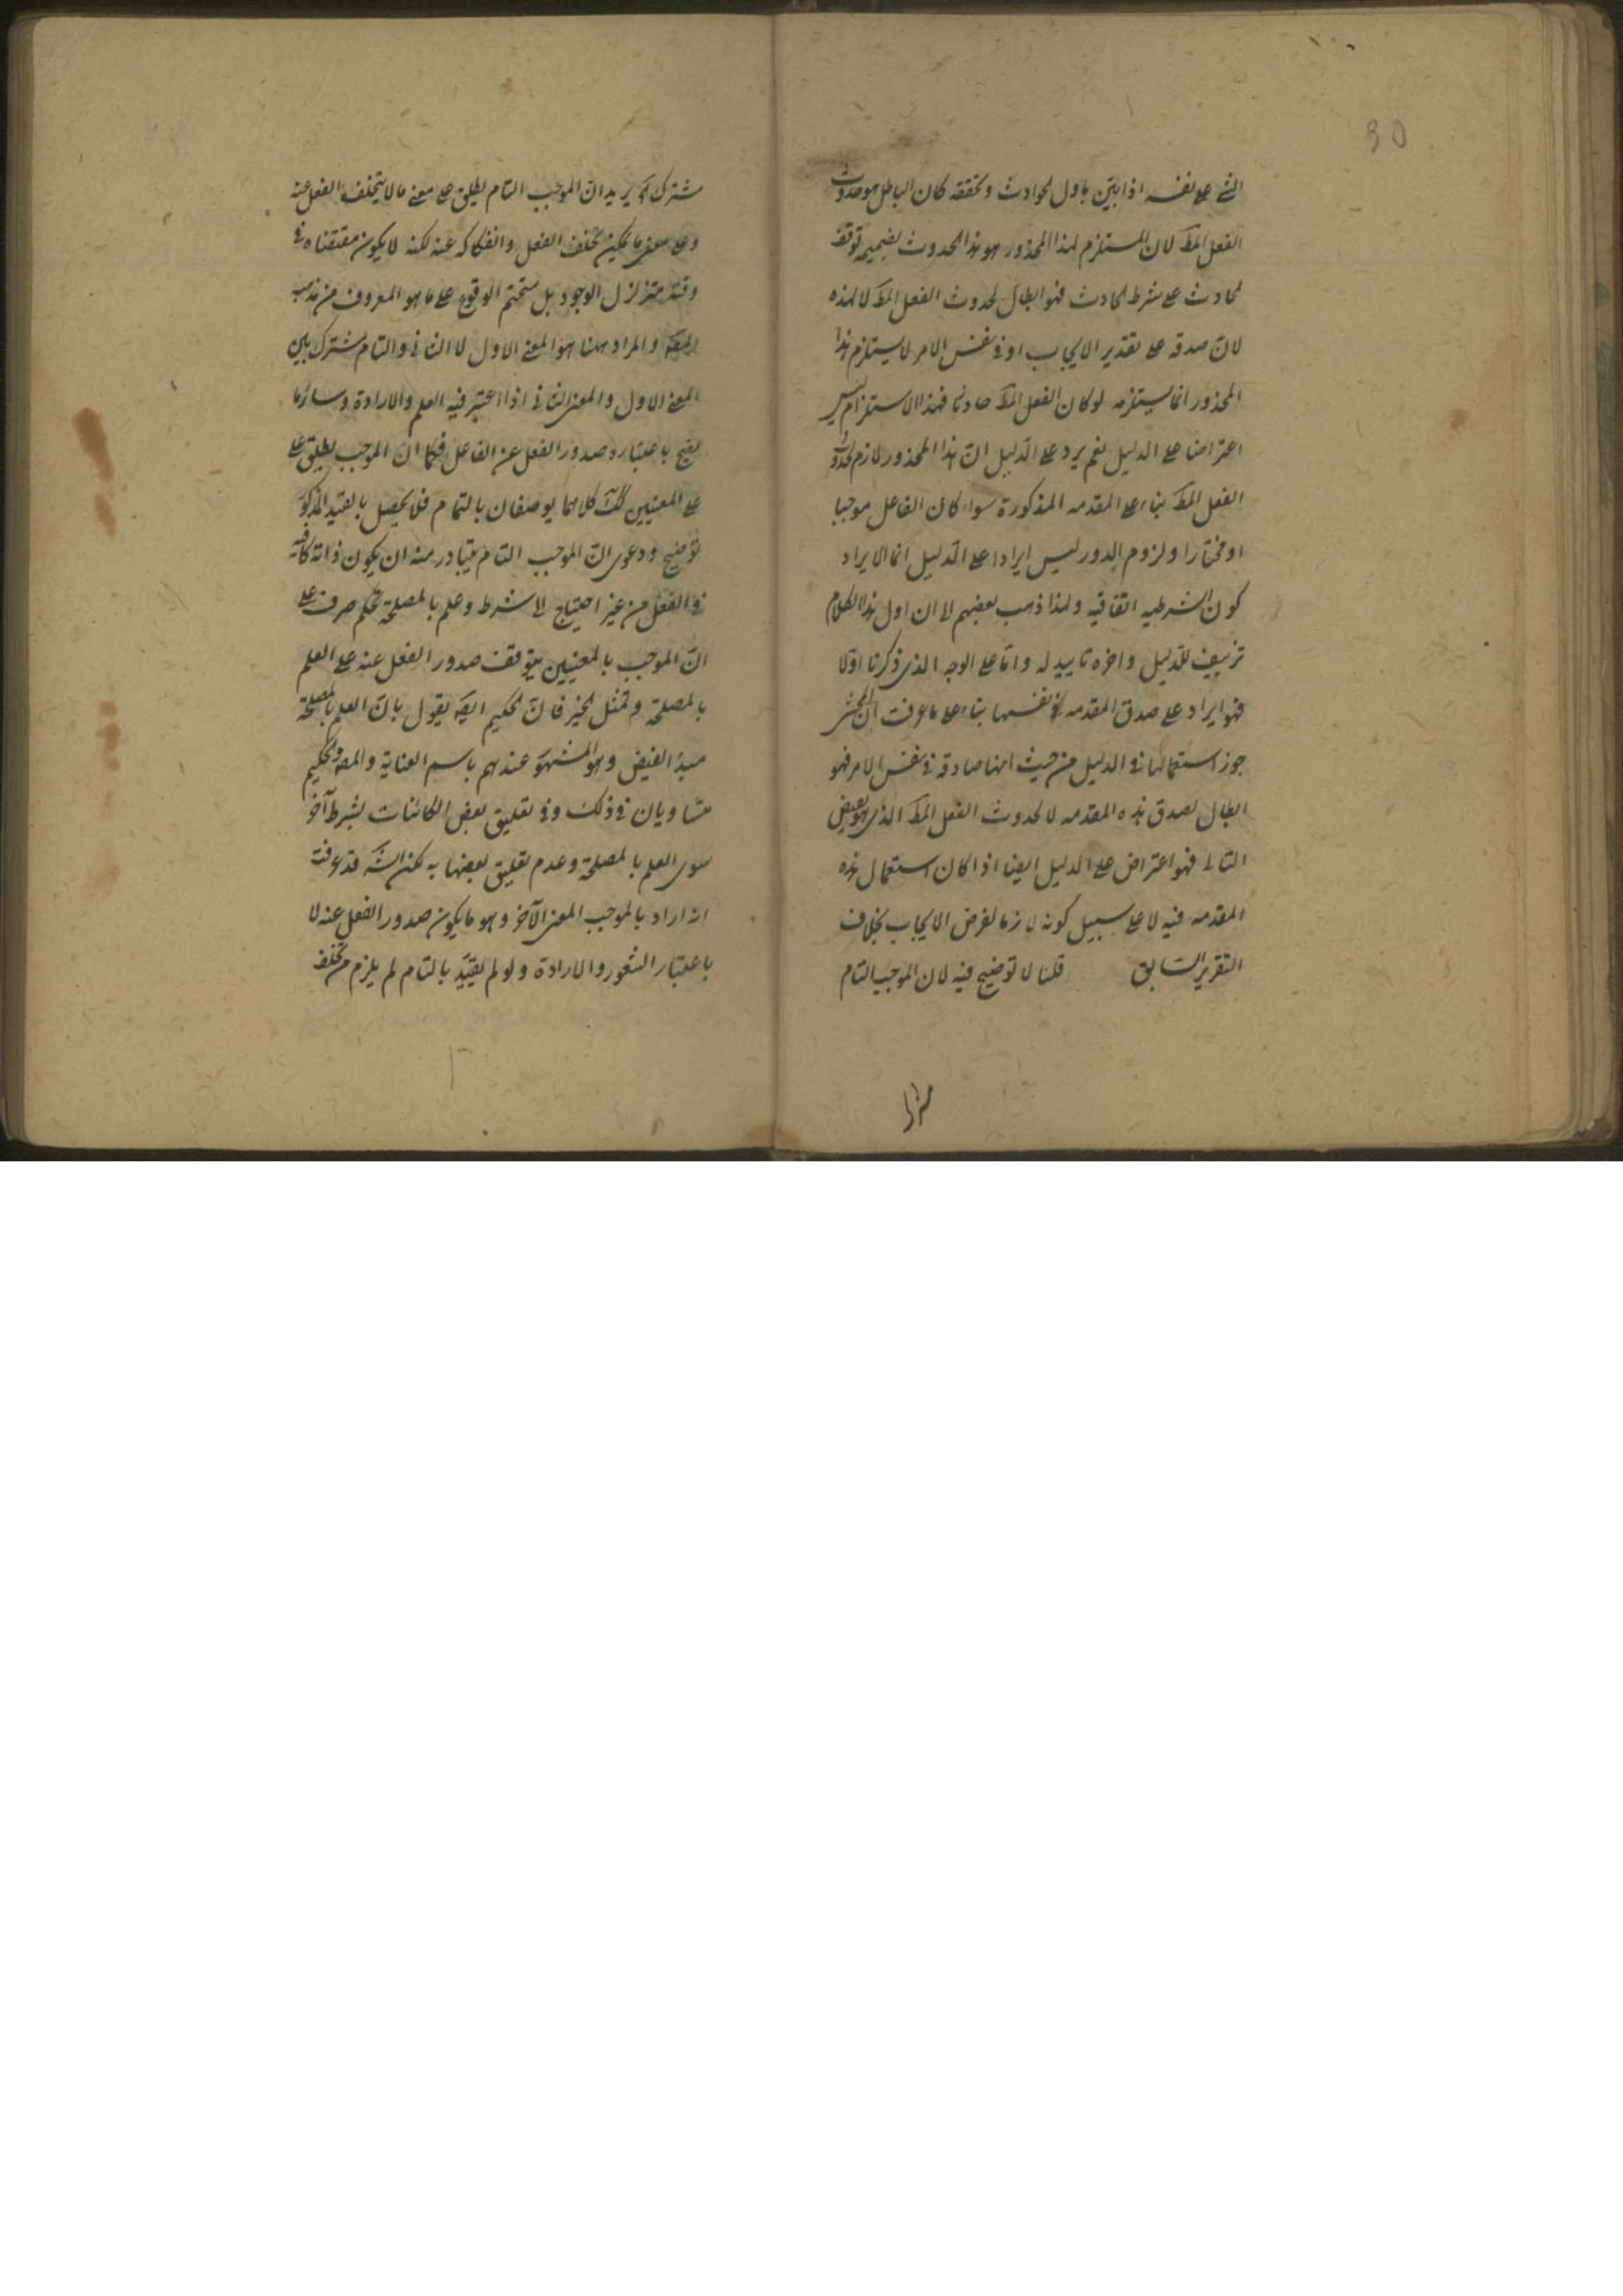 30
الشئ على نفسه اذا بيّن باول الحوادث وتحققه كان الباطل هو حدوث
الفعل المط لان المستلزم لهذا المحذور هو هذا الحدوث بضميمة توقف
الحادث على شرط حادث فهو ابطال لحدوث الفعل المط لا لهذه
لان صدقه على تقدير الايجاب او فى نفس الامر لا يستلزم هذا
المحذور انما يستلزمه لو كان الفعل المط حادثا فهذا الاستلزام ليس
اعتراضا على الدليل نعم يرد على الدليل ان هذا المحذور لازم لحدوث
الفعل المط بناء على المقدمه المذكورة سواء كان الفاعل موجبا
او مختارا ولزوم الدور ليس ايرادا على الدليل انما الايراد
كون الشرطيه اتفاقيه ولهذا ذهب بعضهم الى ان اول هذا الكلام
تزييف للدليل واخره تاييد له واما على الوجه الذى ذكرنا اولا
فهو ايراد على صدق المقدمه فى نفسها بناء على ما عرفت ان المحشى
جوز استعمالها فى الدليل من حيث انها صادقه فى نفس الامر فهو
ابطال لصدق هذه المقدمه لا لحدوث الفعل المط الذى هو نقيض
التالى فهو اعتراض على الدليل ايضا اذا كان استعمال هذه
المقدمه فيه لا على سبيل كونه لازما لفرض الايجاب بخلاف
التقرير السابق قلنا لا توضيح فيه لان الموجب التام
مشترك يريد ان الموجب التام يطلق على معنى ما لا يتخلف الفعل عنه
وعلى معنى ما يمكن تخلف الفعل وانفكاكه عنه لكنه لا يكون مقتضاه فى
وقته متزلزل الوجود بل متحتم الوقوع على ما هو المعروف من مذهب
المص والمراد ههنا هو المعنى الاول لا الثانى والتام مشترك بين
المعنى الاول والمعنى الثانى اذا اعتبر فيه العلم والارادة وساير ما
يصح باعتباره صدور الفعل عن الفاعل فكما ان الموجب يطلق على
على المعنيين كك كلاهما يوصفان بالتمام فلا يحصل بالقيد المذكور
توضيح ودعوى ان الموجب التام يتبادر منه ان يكون ذاته كافيه
فى الفعل من غير احتياج الى شرط وعلم بالمصلحة تحكم صرف على
ان الموجب بالمعنيين يتوقف صدور الفعل عنه على العلم
بالمصلحة وتمثل الخير فان الحكيم ايض يقول بان العلم بالمصلحة
مبدأ الفيض وهو المشهور عندهم باسم العناية والمص والحكيم
متساويان فى ذلك وفى تعليق بعض الكائنات بشرط آخر
سوى العلم بالمصلحة وعدم تعليق بعضها به لكن الش قد عرفت
انه اراد بالموجب المعنى الآخر وهو ما يكون صدور الفعل عنه لا
باعتبار الشعور والارادة ولو لم يقيد بالتام لم يلزم من تخلف